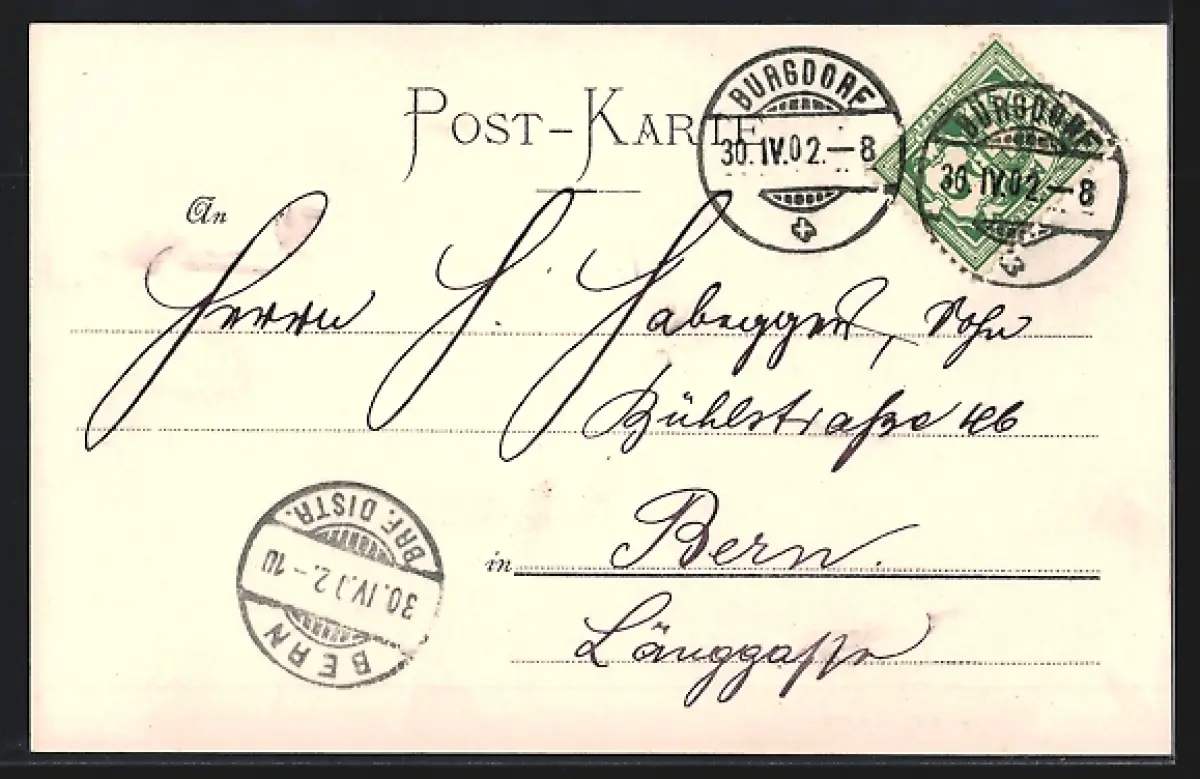 POST-KARTE
BURGDORF
30.IV.02.-8
BURGDORF
30.IV.02.-8
An
Herrn H. Habegger, Sohn
Bühlstraße 46
in Bern.
Länggasse
BRF. DISTR.
30.IV.02.-10
BERN